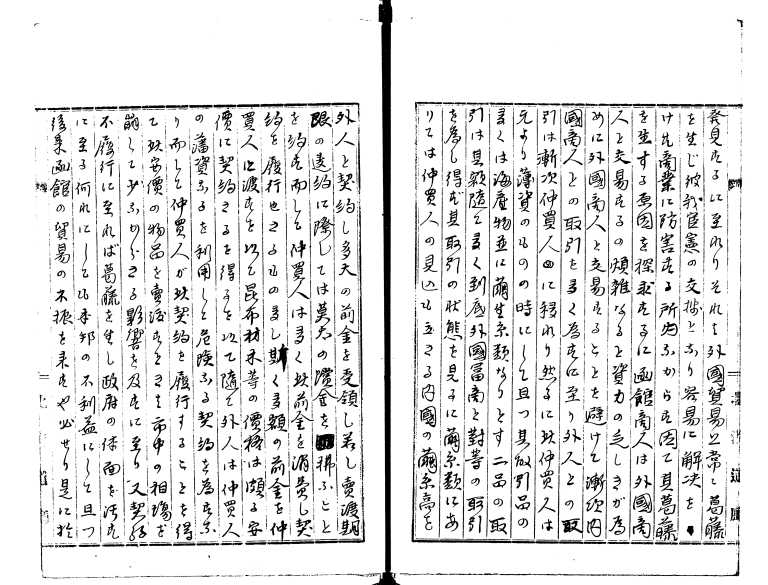 発見するに至れりそれ外國貿易上常に葛藤
を生じ彼我官憲の交渉となり容易に解決を
け凡商業に防害する所尠からず因て其葛藤
を生する原因を探求するに函館商人は外國商
人と交易するの煩雑なると資力の乏しきが為
めに外國商人と交易することを避けて漸次内
國商人との取引を多く為すに至り外人との取
引は漸次仲買人に移れり然るに此仲買人は
元より薄資のものの時にして且つ其取引品の
多くは海産物並に繭生糸類なりとす二品の取
引は其額随て多く到底外國冨商と對等の取引
を為し得ず其取引の状態を見るに繭糸類にあ
りては仲買人の見込も立ざる内國の繭糸商を
外人と契約し多大の前金を受領し若し賣渡期
限の違約に際しては莫大の償金を拂ふこと
を約す而して仲買人は多く此前金を消費し契
約を履行せざるもの多し斯く多額の前金を仲
買人に渡すを以て昆布材木等の價格は頗る安
價に契約さるを得るを以て随て外人は仲買人
の薄資なるを利用して危険なる契約を為すな
り而して仲買人が此契約を履行することを得
て此安價の物品を賣渡すときは市中の相場を
崩して少なからざる影響を及すに至り又契約
不履行に至れば葛藤を生し政府の体面を汚す
に至る何れにしても本邦の不利益にして且つ
後来函館の貿易の不振を来すや必せり是に於